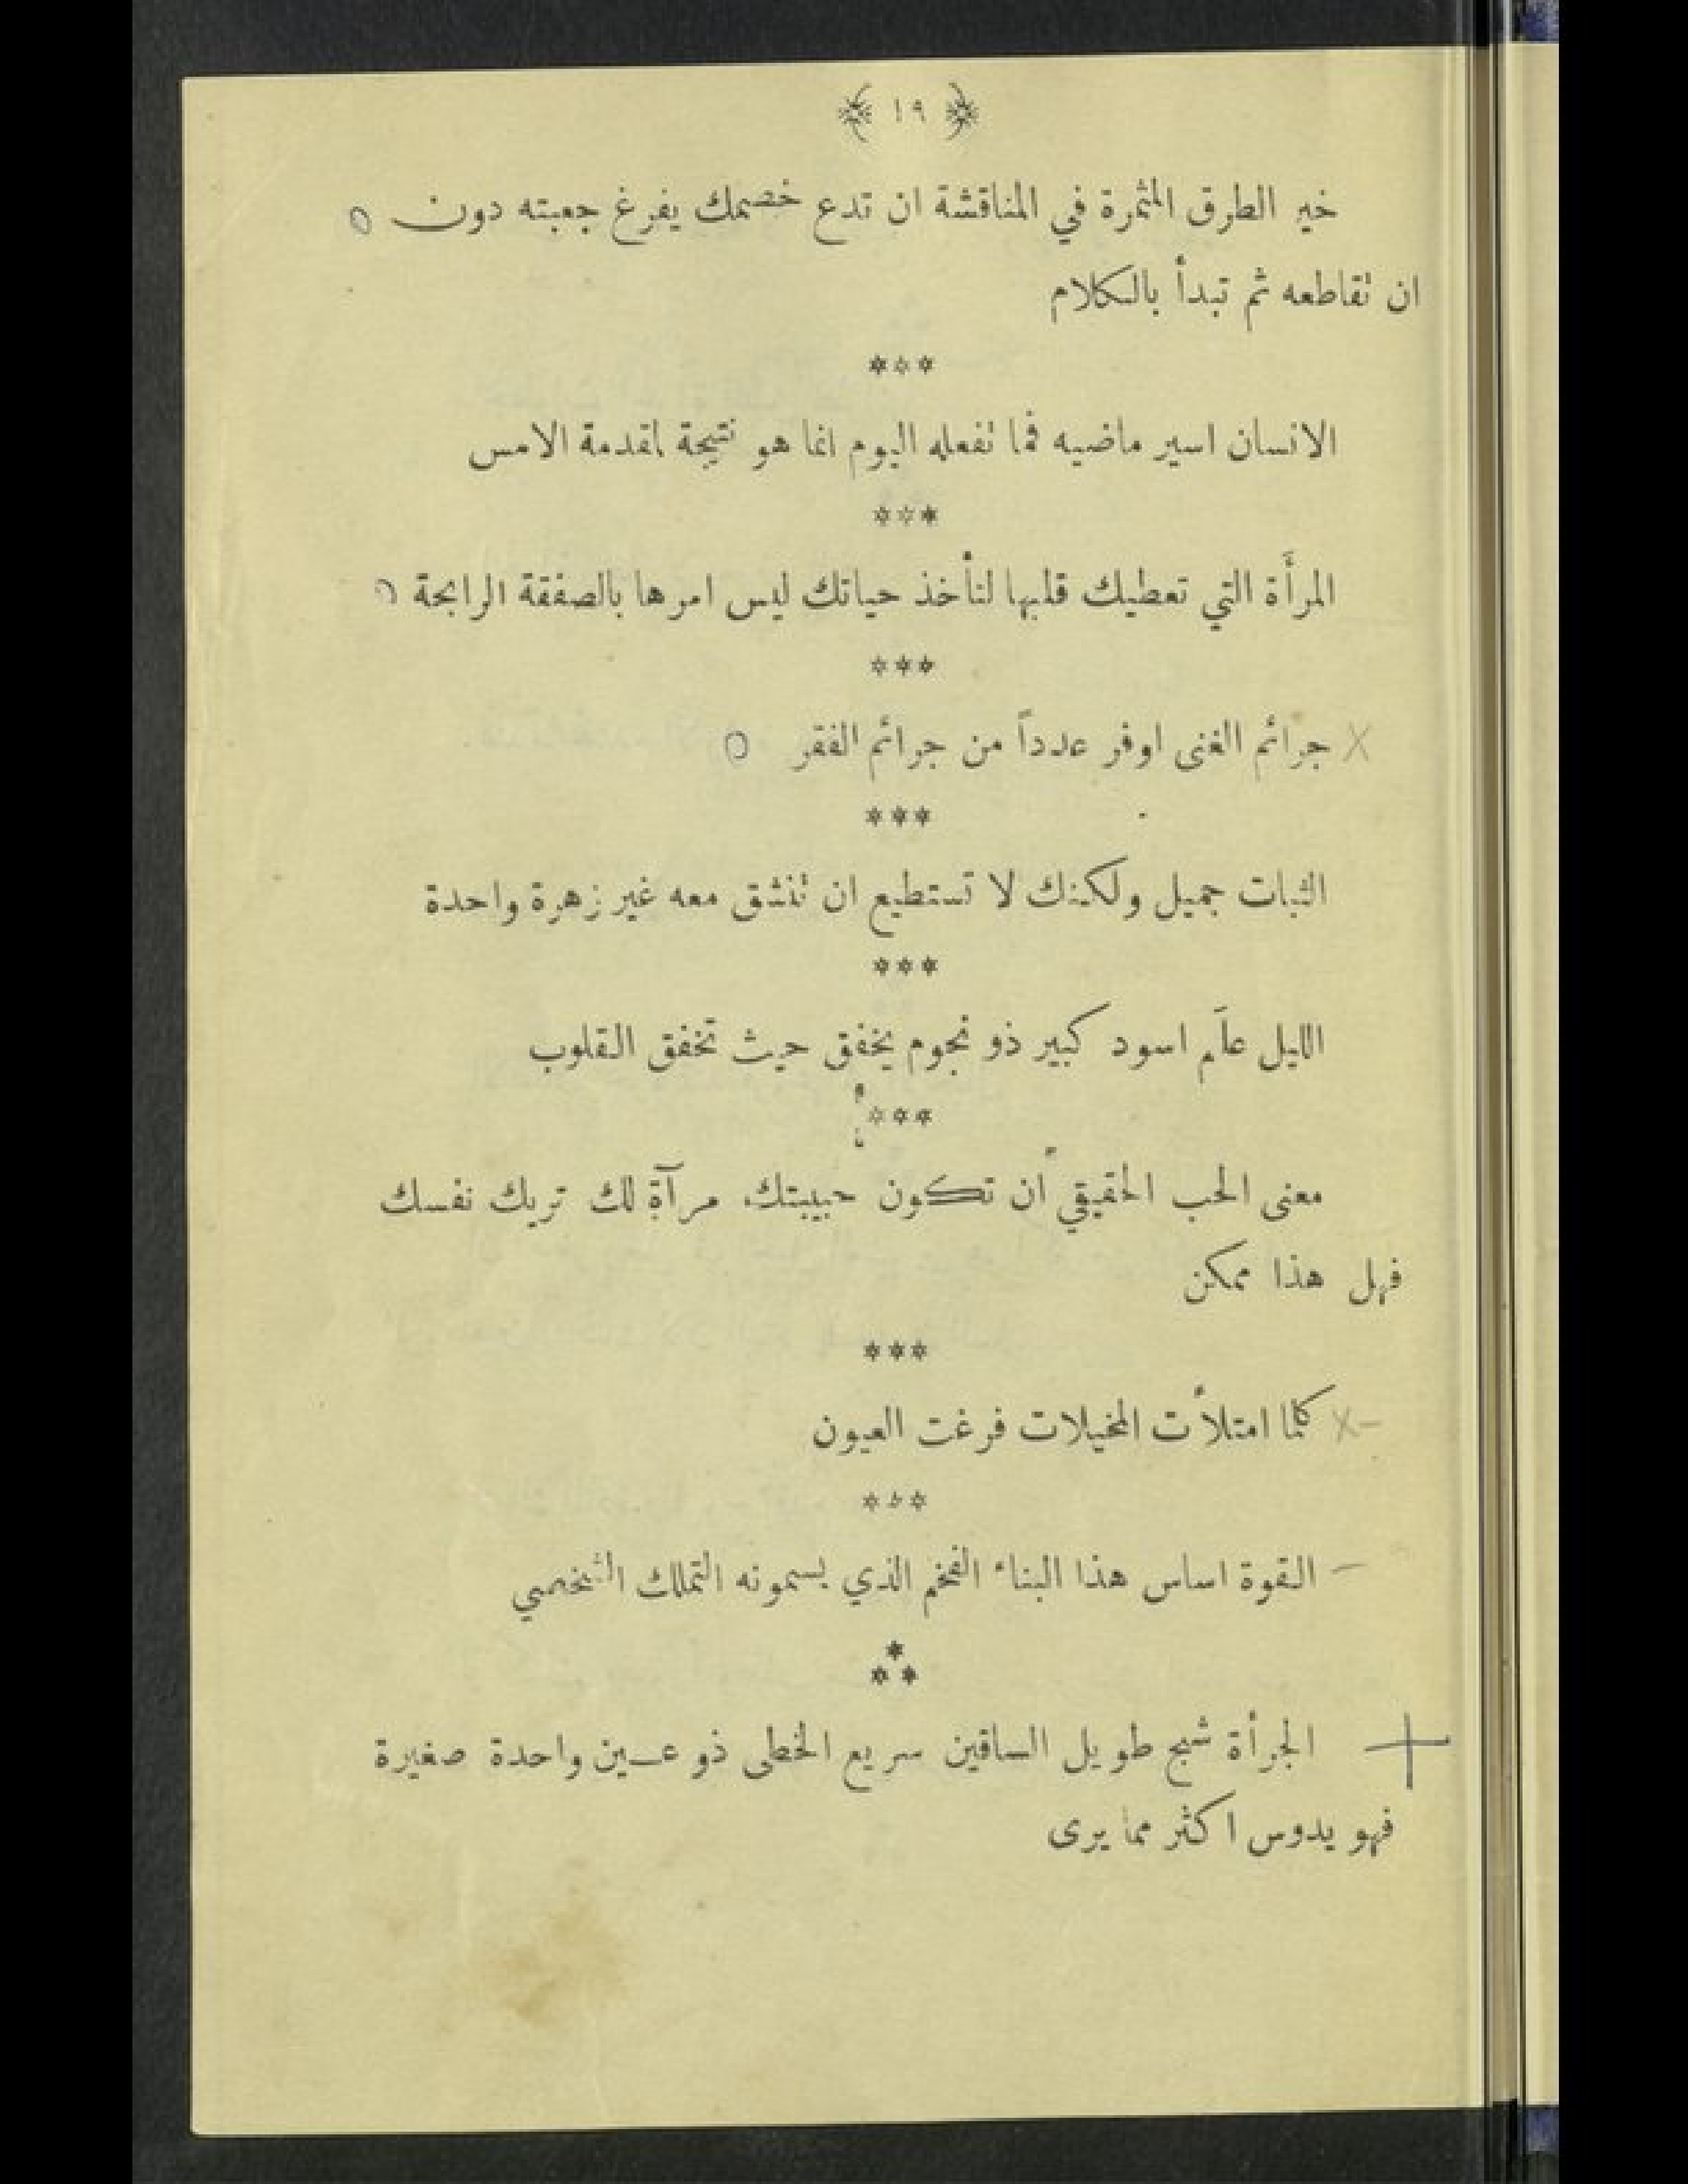 ١٩
خير الطرق المثمرة في المناقشة ان تدع خصمك يفرغ جعبته دون
ان تقاطعه ثم تبدأ بالكلام
***
الانسان اسير ماضيه فما تفعله اليوم انما هو نتيجة لمقدمة الامس
***
المرأَة التي تعطيك قلبها لتأخذ حياتك ليس امرها بالصفقة الرابحة
***
جرائم الغنى اوفر عدداً من جرائم الفقر
***
الثبات جميل ولكنك لا تستطيع ان تنشق معه غير زهرة واحدة
***
الليل علَم اسود كبير ذو نجوم يخفق حيث تخفق القلوب
***
معنى الحب الحقيقي أن تكون حبيبتك مرآة لك تريك نفسك
فهل هذا ممكن
***
كلما امتلأت المخيلات فرغت العيون
***
القوة اساس هذا البناء الفخم الذي يسمونه التملك الشخصي
***
الجرأة شبح طويل الساقين سريع الخطى ذو عـين واحدة صغيرة
فهو يدوس اكثر مما يرى